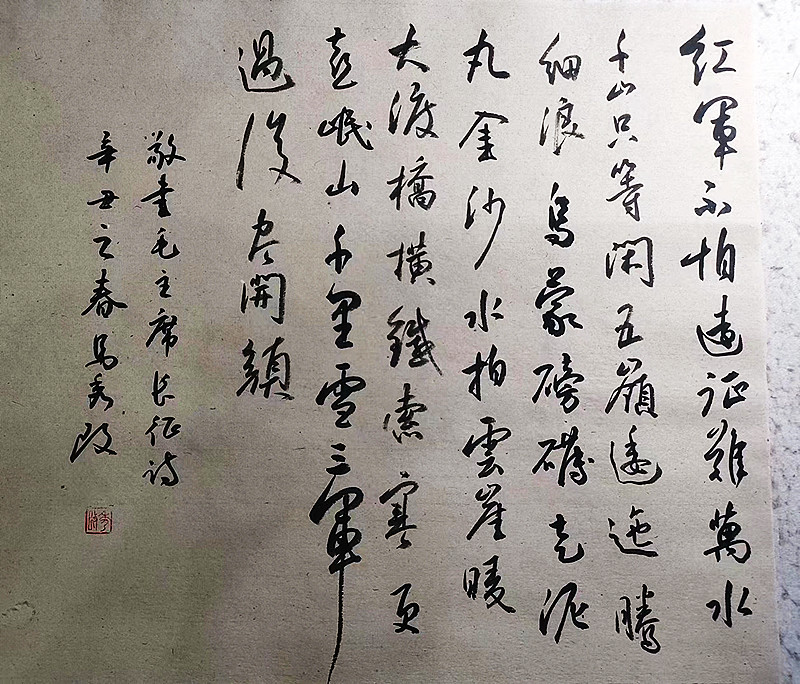 紅軍不怕遠征難萬水
千山只等閑五嶺逶迤騰
細浪烏蒙磅礴走泥
丸金沙水拍雲崖暖
大渡橋橫鐵索寒更
喜岷山千里雪三軍
過後尽開顏
敬書毛主席长征诗
辛丑之春馬秀